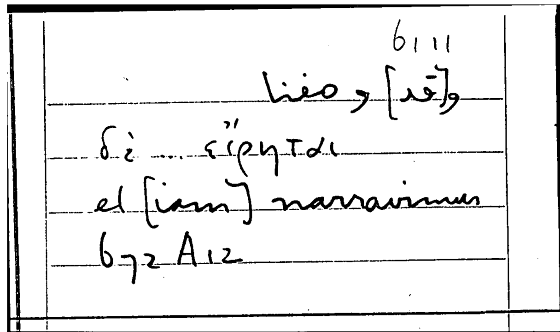 6,11
δὲ ... εἴρηται
et [iam] narravimus
672 A12